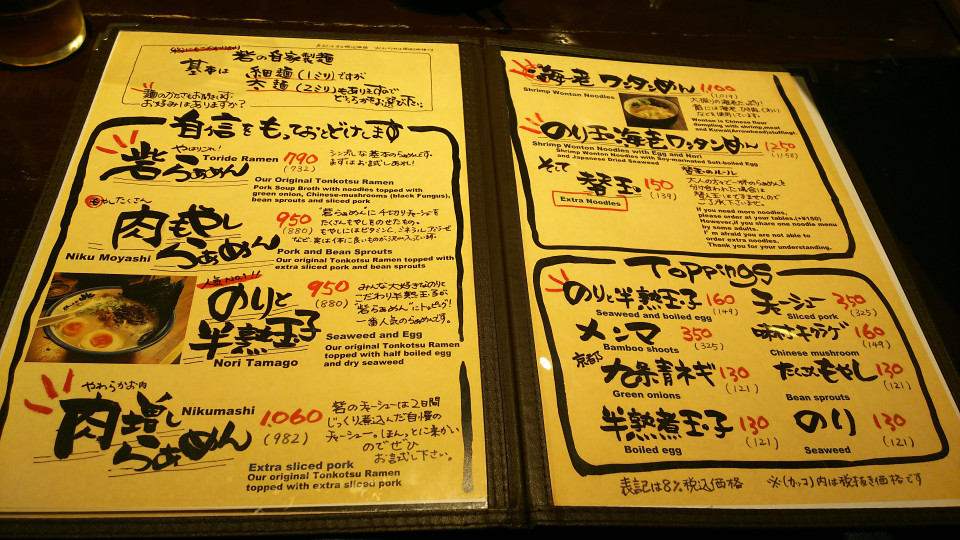 砦の自家製麺
基本は 細麺(1ミリ)ですが
太麺(2ミリ)もありますので
どちらかをお選び下さい
麺のかたさもお聞きします
お好みはありますか?
自信をもっておとどけします
やはりこれ!
砦らぁめん
Toride Ramen
790
(732)
シンプルな基本のらぁめんです。
まずはお試しあれ!
Our Original Tonkotsu Ramen
Pork Soup Broth with noodles topped with
green onion, Chinese-mushrooms (black Fungus),
bean sprouts and sliced pork
もやしたくさん
肉もやし
らぁめん
Niku Moyashi
950
(880)
"砦らぁめん"に千切りチャーシューと
たくさんもやしをのせたもの。
もやしにはビタミンC、
Pork and Bean Sprouts
Our original Tonkotsu Ramen topped with
extra sliced pork and bean sprouts
人気No.1!!
のりと
半熟玉子
Nori Tamago
950
(880)
みんな大好きなのりと
こだわり半熟玉子が
"砦らぁめん"にトッピング!
一番人気のらぁめんです。
Seaweed and Egg
Our original Tonkotsu Ramen
topped with half boiled egg
and dry seaweed
やわらかお肉
肉増し
らぁめん
Nikumashi
1,060
(982)
砦のチャーシューは2日間
じっくり煮込んだ自慢の
チャーシュー。ほんっとに柔かい
のでぜひ
お試し下さい。
Extra sliced pork
Our original Tonkotsu Ramen
topped with extra sliced pork
海老ワンタンめん
1100
(1,019)
Shrimp Wonton Noodles
Wonton is Chinese flour
dumpling with shrimp,meat
and Kuwai(Arrowhead)stuffing!
のり玉海老ワンタンめん
1250
(1158)
Shrimp Wonton Noodles with Egg and Nori
Shrimp Wonton Noodles with Soy-marinated Soft-boiled Egg
and Japanese Dried Seaweed
そして
替玉
150
(139)
Extra Noodles
替玉のルール
大人の方で一杯のらぁめんを
分け合われた場合は
替え玉はできませんので
ご了承下さいませ。
If you need more noodles,
please order at your tables.(+¥150)
However,if you share one noodle menu
by some adults.
I' m afraid you are not able to
order extra noodles.
Thank you for your understanding.
Toppings
のりと半熟玉子
160
(149)
Seaweed and boiled egg
チャーシュー
350
(325)
Sliced pork
メンマ
350
(325)
Bamboo shoots
味付キクラゲ
160
(149)
Chinese mushroom
京都
九条青ネギ
130
(121)
Green onions
たくさんもやし
130
(121)
Bean sprouts
半熟煮玉子
130
(121)
Boiled egg
のり
130
(121)
Seaweed
表記は8%税込価格 ※(カッコ)内は税抜き価格です